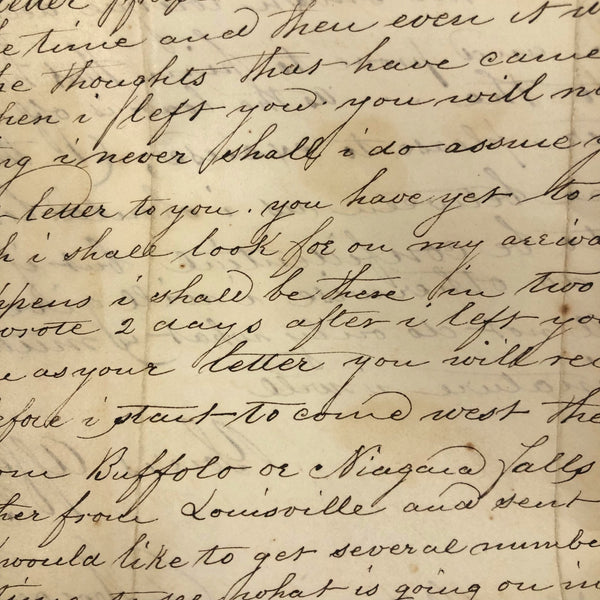 letter
e time and then even it w
he thoughts that have came
hen i left you. you will no
ng i never shall i do assure y
letter to you. you have yet to
h i shall look for on my arriva
ppens i shall be there in two
wrote 2 days after i left yo
as your letter you will rec
efore i start to come west the
om Buffolo or Niagara falls
her from Louisville and sent
would like to get several numbe
time to see what is going on in